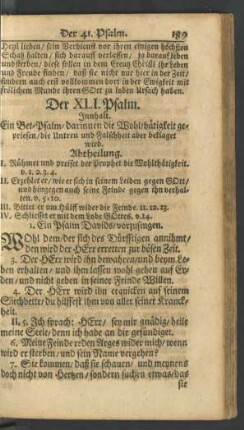 Der 41. Psalm. 189
Heyl lieben / sein Verdienst vor ihren einigen höchsten
Schatz halten / sich darauff verlassen / so darauf leben
und sterben / diese sollen in dem Creutz Christi ihr Leben
und Freude finden / daß sie nicht nur hier in der Zeit /
sondern auch erst vollkommen dort in der Ewigkeit mit
frölichem Munde ihren GOtt zu loben Ursach haben.
Der XLI. Psalm.
Innhalt.
Ein Bet-Psalm / darinnen die Wohlthätigkeit ge-
priesen / die Untreu und Falschheit aber beklaget
wird.
Abtheilung.
I. Rühmet und preiset der Prophet die Wohlthätigkeit.
v. 1. 2. 3. 4.
II. Erzehlet er / wie er sich in seinem Leiden gegen GOtt /
und hingegen auch seine Feinde gegen ihn verhal-
ten. v. 5-10.
III. Bittet er um Hülff wider die Feinde. 11. 12. 13.
IV. Schliesset er mit dem Lobe GOttes. v. 14.
1. Ein Psalm Davids / vorzusingen.
WOhl dem / der sich des Dürfftigen annihmt /
den wird der HErr erretten zur bösen Zeit.
3. Der HErr wird ihn bewahren / und beym Le-
ben erhalten / und ihm lassen wohl gehen auf Er-
den / und nicht geben in seiner Feinde Willen.
4. Der HErr wird ihn erquicken auf seinem
Siechbette / du hilffest ihm von aller seiner Kranck-
heit.
II. 5. Ich sprach: HErr / sey mir gnädig / heile
meine Seele / denn ich habe an dir gesündiget.
6. Meine Feinde reden Arges wider mich / wenn
wird er sterben / und sein Name vergehen?
7. Sie kommen / daß sie schauen / und meynens
doch nicht von Hertzen / sondern suchen etwas / das
sie